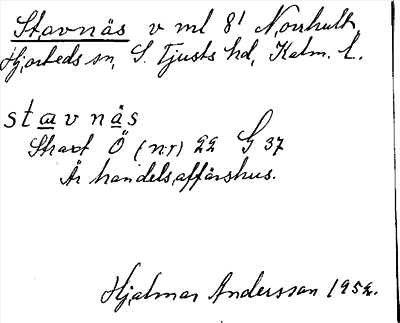 Stavnäs v ml 8¹ Norrhult,
Hjorteds sn, S. Tjusts hd, Kalm. l.
stavnäs
Strax Ö (nr) 22 G 37
Är handelsaffärshus.
Hjalmar Andersson 1952.